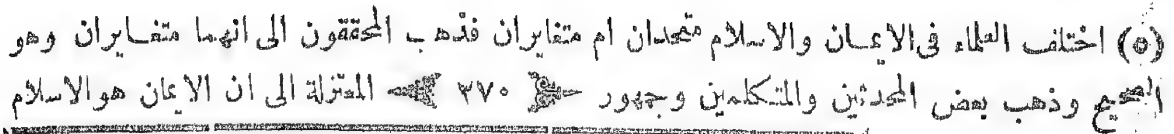 (٥) اختلف العلماء فى الايمان والاسلام متحدان ام متغايران فذهب المحققون الى انهما متغايران وهو
الصحيح وذهب بعض المحدثين والمتكلمين وجمهور ٣٧٠ المعتزلة الى ان الايمان هو الاسلام